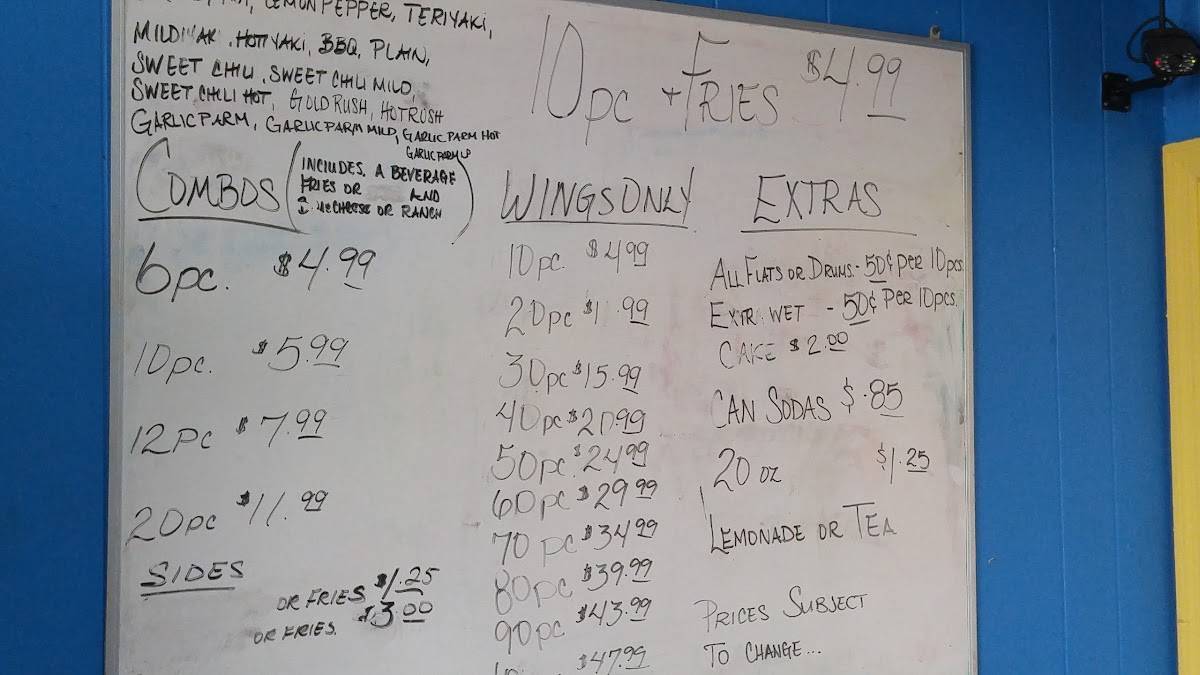 LEMON PEPPER, TERIYAKI,
HOTTYAKI, BBQ, PLAIN,
SWEET CHILI, SWEET CHILI MILD,
SWEET CHILI HOT, GOLD RUSH, HOT RUSH
GARLIC PARM, GARLIC PARM MILD, GARLIC PARM HOT
GARLIC PARM LP
10pc + FRIES $4.99
COMBOS (INCLUDES A BEVERAGE
FRIES OR AND
CHEESE OR RANCH)
6pc. $4.99
10pc. $5.99
12pc $7.99
20pc $11.99
SIDES
OR FRIES $1.25
OR FRIES. $3.00
WINGS ONLY
10pc. $4.99
20pc $11.99
30pc $15.99
40pc $20.99
50pc. $24.99
60pc $29.99
70pc $34.99
80pc $39.99
90pc $43.99
$47.99
EXTRAS
ALL FLATS OR DRUMS - 50¢ PER 10pcs.
EXTR WET - 50¢ PER 10pcs.
CAKE $2.00
CAN SODAS $.85
20 oz $1.25
LEMONADE OR TEA
PRICES SUBJECT
TO CHANGE...